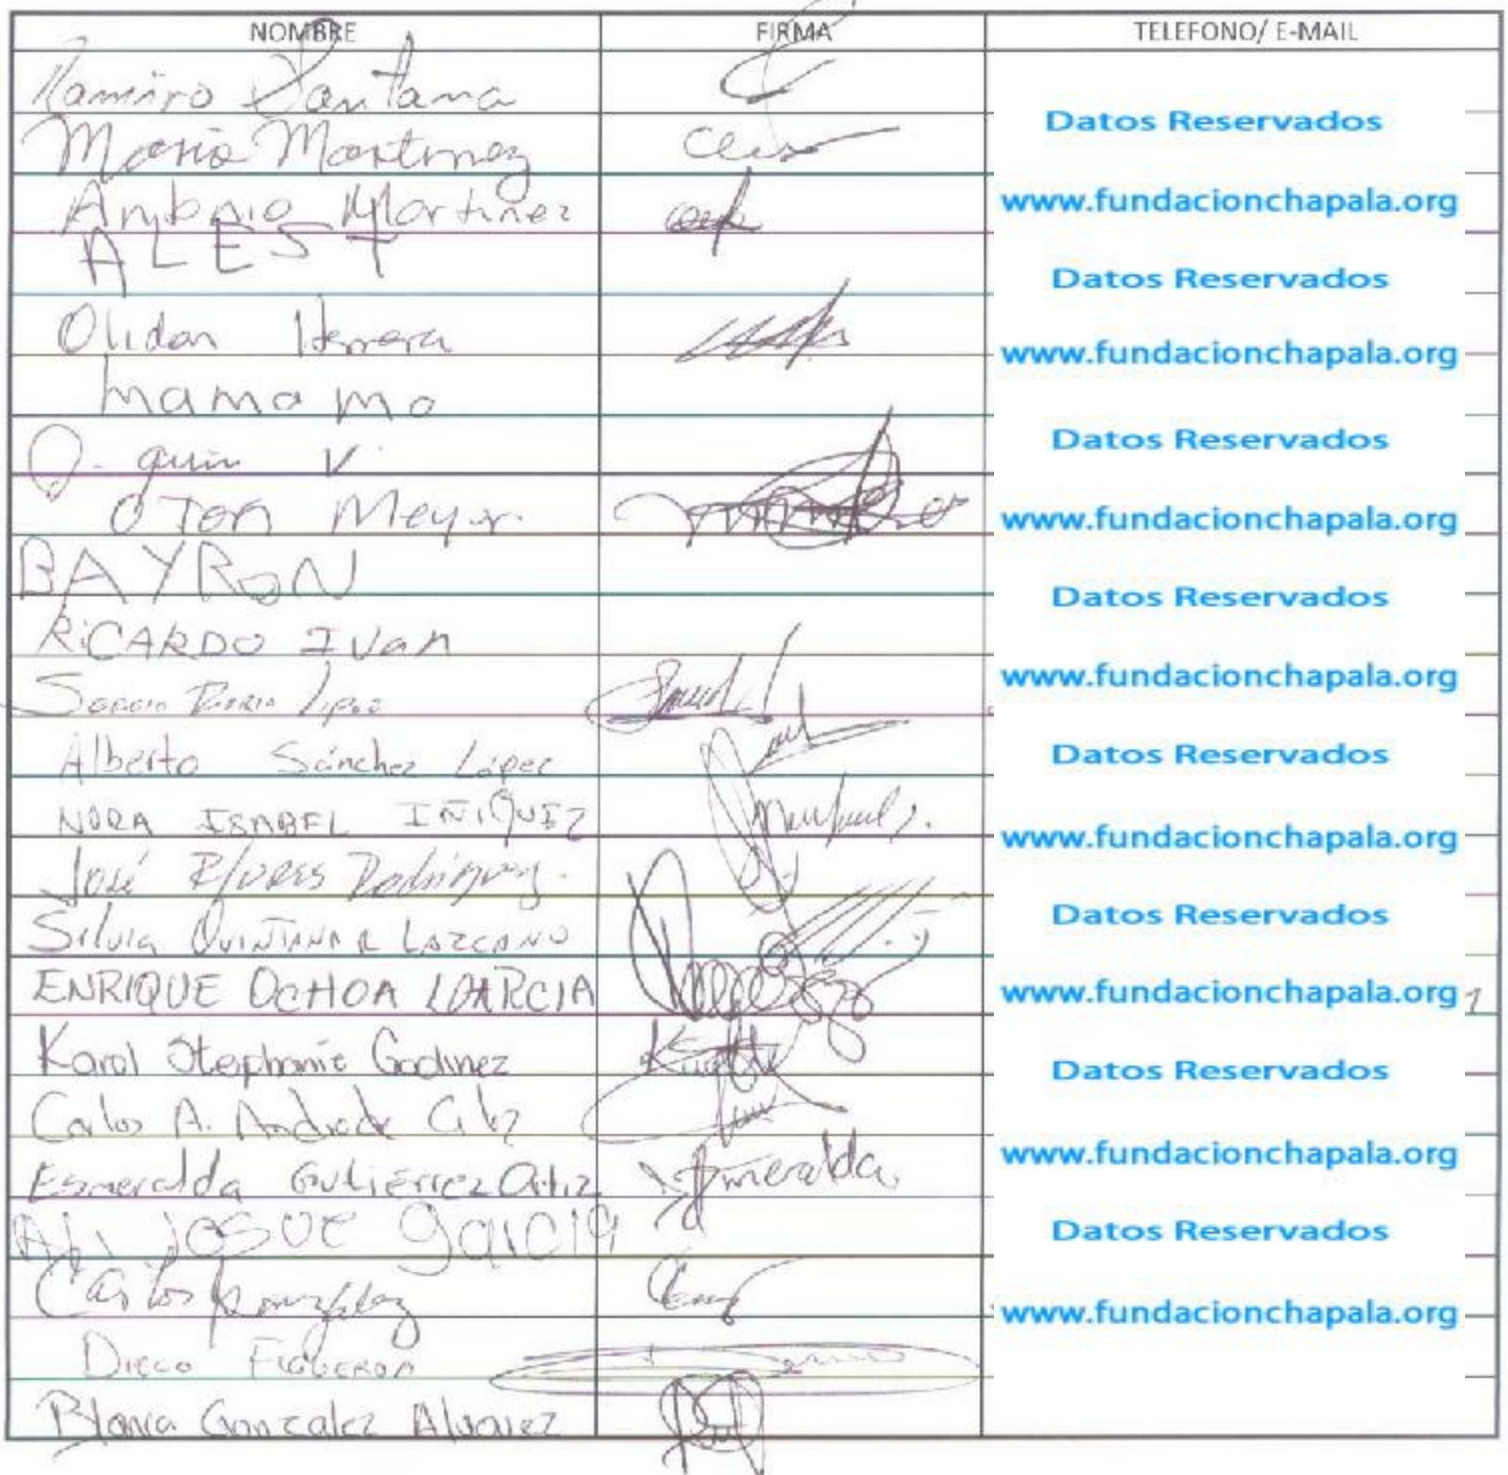 NOMBRE FIRMA TELEFONO/ E-MAIL
Ramiro Santana
Maria Martinez
Datos Reservados
Antonio Martinez
www.fundacionchapala.org
ALEST
Datos Reservados
Olidan Herrera
www.fundacionchapala.org
mamamo
Datos Reservados
V.
OTON Meyer
www.fundacionchapala.org
BAYRON
Datos Reservados
RiCARDO IVan
www.fundacionchapala.org
Sergio López
Alberto Sánchez López
Datos Reservados
NORA ISABEL IÑIQUEZ
www.fundacionchapala.org
José Rodriguez.
Silvia QUINTANAR LAZCANO
Datos Reservados
ENRIQUE OCHOA GARCIA
www.fundacionchapala.org
Karol Stephanie Godinez
Datos Reservados
Carlos A. Andrade
Esmeralda Gutiérrez Ortiz Esmeralda
www.fundacionchapala.org
JOSUE garcia
Datos Reservados
Carlos González
www.fundacionchapala.org
DIEGO FIGUEROA
Blanca Gonzalez Alvarez